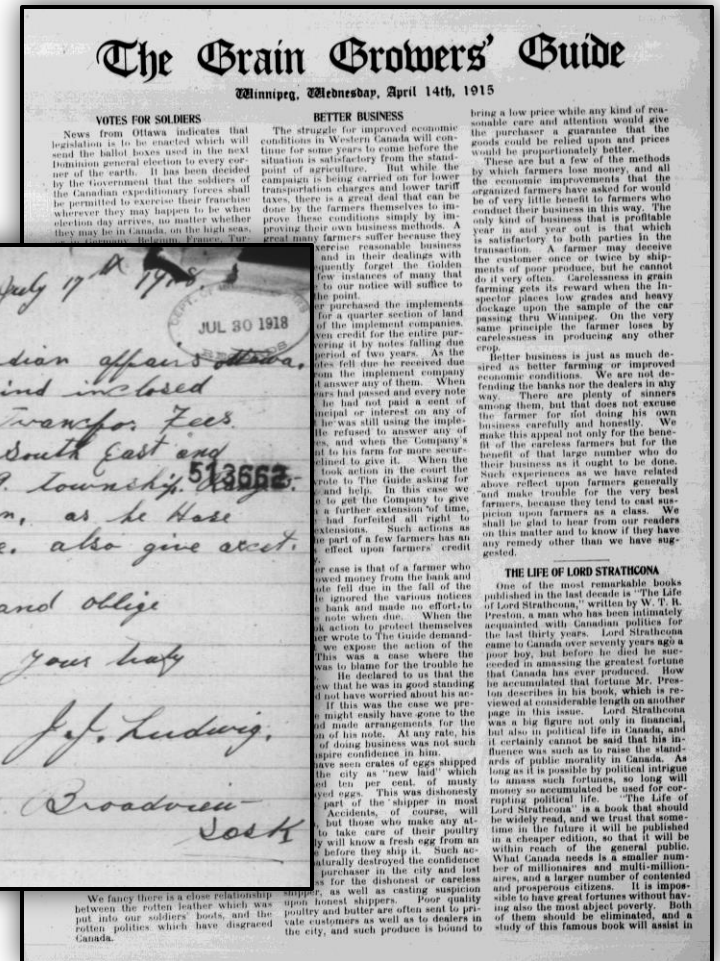 The Grain Growers' Guide
Winnipeg, Wednesday, April 14th, 1915
VOTES FOR SOLDIERS
News from Ottawa indicates that
legislation is to be enacted which will
send the ballot boxes used in the next
Dominion general election to every cor-
ner of the earth. It has been decided
by the Government that the soldiers of
the Canadian expeditionary forces shall
be permitted to exercise their franchise
wherever they may happen to be when
election day arrives, no matter whether
they may be in Canada, on the high seas,
or in Germany, Belgium, France, Tur-
We fancy there is a close relationship
between the rotten leather which was
put into our soldiers' boots, and the
rotten politics which have disgraced
Canada.
BETTER BUSINESS
The struggle for improved economic
conditions in Western Canada will con-
tinue for some years to come before the
situation is satisfactory from the stand-
point of agriculture. But while the
campaign is being carried on for lower
transportation charges and lower tariff
taxes, there is a great deal that can be
done by the farmers themselves to im-
prove these conditions simply by im-
proving their own business methods. A
great many farmers suffer because they
exercise reasonable business
and in their dealings with
quently forget the Golden
few instances of many that
to our notice will suffice to
the point.
er purchased the implements
for a quarter section of land
of the implement companies.
ven credit for the entire pur-
vering it by notes falling due
period of two years. As the
otes fell due he received due
rom the implement company
t answer any of them. When
ears had passed and every note
he had not paid a cent of
incipal or interest on any of
he was still using the imple-
He refused to answer any of
es, and when the Company's
t to his farm for more secur-
clined to give it. When the
took action in the court the
rote to The Guide asking for
and help. In this case we
e to get the Company to give
a further extension of time,
had forfeited all right to
extensions. Such actions as
he part of a few farmers has an
effect upon farmers' credit
y.
er case is that of a farmer who
owed money from the bank and
ote fell due in the fall of the
e ignored the various notices
e bank and made no effort to
note when due. When the
ok action to protect themselves
er wrote to The Guide demand-
we expose the action of the
This was a case where the
was to blame for the trouble he
He declared to us that the
ew that he was in good standing
d not have worried about his ac-
If this was the case we pre-
e might easily have gone to the
nd made arrangements for the
n of his note. At any rate, his
of doing business was not such
nspire confidence in him.
ave seen crates of eggs shipped
the city as "new laid" which
ed ten per cent. of musty
ayed eggs. This was dishonesty
part of the shipper in most
Accidents, of course, will
but those who make any at-
to take care of their poultry
ly will know a fresh egg from an
before they ship it. Such ac-
aturally destroyed the confidence
purchaser in the city and lost
ss for the dishonest or careless
shipper, as well as casting suspicion
upon honest shippers. Poor quality
poultry and butter are often sent to pri-
vate customers as well as to dealers in
the city, and such produce is bound to
bring a low price while any kind of rea-
sonable care and attention would give
the purchaser a guarantee that the
goods could be relied upon and prices
would be proportionately better.
These are but a few of the methods
by which farmers lose money, and all
the economic improvements that the
organized farmers have asked for would
be of very little benefit to farmers who
conduct their business in this way. The
only kind of business that is profitable
year in and year out is that which
is satisfactory to both parties in the
transaction. A farmer may deceive
the customer once or twice by ship-
ments of poor produce, but he cannot
do it very often. Carelessness in grain
farming gets its reward when the In-
spector places low grades and heavy
dockage upon the sample of the car
passing thru Winnipeg. On the very
same principle the farmer loses by
carelessness in producing any other
crop.
Better business is just as much de-
sired as better farming or improved
economic conditions. We are not de-
fending the banks nor the dealers in any
way. There are plenty of sinners
among them, but that does not excuse
the farmer for not doing his own
business carefully and honestly. We
make this appeal not only for the bene-
fit of the careless farmers but for the
benefit of that large number who do
their business as it ought to be done.
Such experiences as we have related
above reflect upon farmers generally
and make trouble for the very best
farmers, because they tend to cast sus-
picion upon farmers as a class. We
shall be glad to hear from our readers
on this matter and to know if they have
any remedy other than we have sug-
gested.
THE LIFE OF LORD STRATHCONA
One of the most remarkable books
published in the last decade is "The Life
of Lord Strathcona," written by W. T. R.
Preston, a man who has been intimately
acquainted with Canadian politics for
the last thirty years. Lord Strathcona
came to Canada over seventy years ago a
poor boy, but before he died he suc-
ceeded in amassing the greatest fortune
that Canada has ever produced. How
he accumulated that fortune Mr. Pres-
ton describes in his book, which is re-
viewed at considerable length on another
page in this issue. Lord Strathcona
was a big figure not only in financial,
but also in political life in Canada, and
it certainly cannot be said that his in-
fluence was such as to raise the stand-
ards of public morality in Canada. As
long as it is possible by political intrigue
to amass such fortunes, so long will
money so accumulated be used for cor-
rupting political life. "The Life of
Lord Strathcona" is a book that should
be widely read, and we trust that some-
time in the future it will be published
in a cheaper edition, so that it will be
within reach of the general public.
What Canada needs is a smaller num-
ber of millionaires and multi-million-
aires, and a larger number of contented
and prosperous citizens. It is impos-
sible to have great fortunes without hav-
ing also the most abject poverty. Both
of them should be eliminated, and a
study of this famous book will assist in
July 17th 1918.
JUL 30 1918
RECORDS
dian affairs ottawa.
ind inclosed
Transfor Fees
South East and
township
513662
n, as he Hase
e. also give acct.
and oblige
Your truly
J. J. Ludwig.
Broadview
Sask